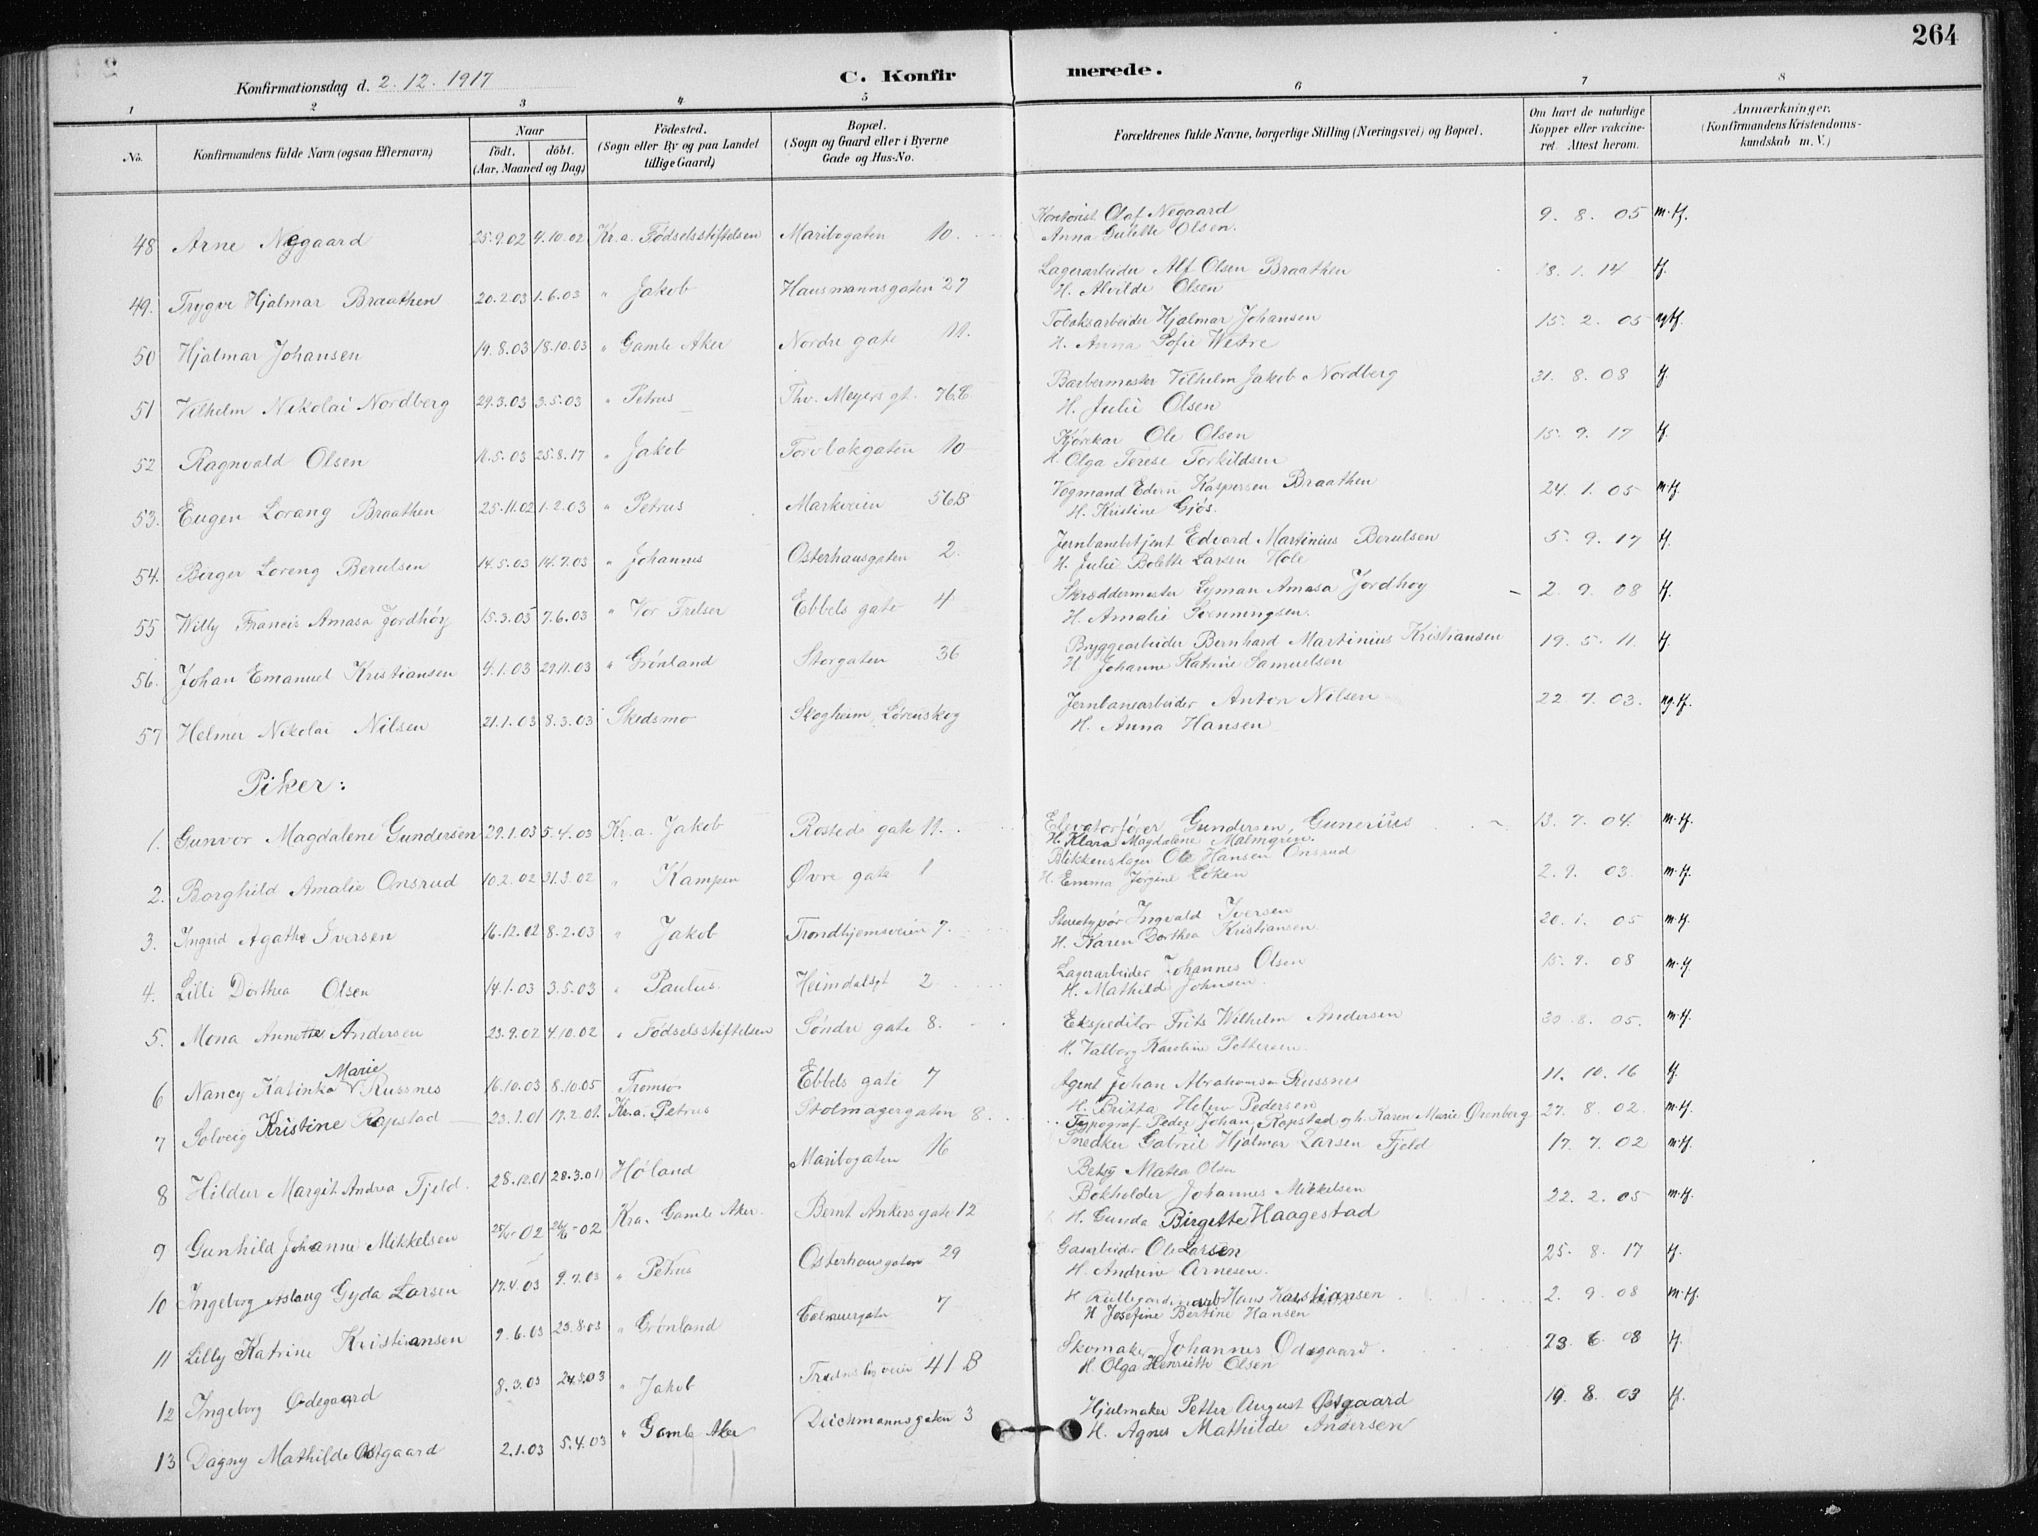 264
Konfirmationsdag d. 2. 12. 1917
C. Konfirmerede.
1 2 3 4 5 6 7 8
No. Konfirmandens fulde Navn (ogsaa Efternavn) Naar født. døbt. (Aar, Maaned og Dag) Fødested. (Sogn eller By og paa Landet tillige Gaard) Bopæl. (Sogn og Gaard eller i Byerne Gade og Hus-No. Forældrenes fulde Navne, borgerlige Stilling (Næringsvei) og Bopæl. Om havt de naturlige Kopper eller vakcineret. Attest herom. Anmærkninger. (Konfirmandens Kristendomskundskab m. V.)
48 Arne Negaard 25.9.02 4.10.02 Kr.a. Fødselsstiftelsen Maribogaten 10. Kontorist Olaf Negaard 9. 8. 05 m.tf.
Anna Gulette Olsen.
49. Trygve Hjalmar Braathen 20.2.03 1.6.03 " Jakob Hausmannsgaten 27 Lagerarbeider Alf Olsen Braathen 18. 1. 14 tf.
H. Alvilde Olsen
50 Hjalmar Johansen 19.8.03 18.10.03 " Gamle Aker Nordre gate 11. Toldksarbeider Hjalmar Johansen 15. 2. 05 ngtf.
H. Anna Sofie Westre
51 Vilhelm Nikolai Nordberg 29.3.03 3.5.03 " Petrus Thv. Meyers gt. 76 B Barbermester Vilhelm Jakob Nordberg 31. 8. 08 tf.
H. Julie Olsen
52 Ragnvald Olsen 11.5.03 25.8.17 " Jakob Torvbakgaten 10 Kjørekar Ole Olsen 15. 9. 17 tf.
H. Olga Terese Torkildsen
53. Eugen Lorang Braathen 25.11.02 1.2.03 " Petrus Markveien 56B Vogmand Edevin Kaspersen Braathen 24. 1. 05 m.tf.
H. Kristine Gjøs.
54. Birger Loreng Berulsen 14.5.03 14.7.03 " Johannes Osterhausgaten 2. Jernbanebetjent Edvard Martinius Berulsen 5. 9. 17 tf.
H. Julie Bolette Larsen Hole
55 Willy Francis Amasa Jordhøy 15.3.03 7.6.03 " Vor Frelser Ebbels gate 4 Skræddermester Lyman Amasa Jordhøy 2. 9. 08 tf.
H. Amalie Svenningsen.
56. Johan Emanuel Kristiansen 4.1.03 29.11.03 " Grønland Storgaten 36 Bryggearbeider Bernhard Martinius Kristiansen 19. 5. 11. tf.
H. Johanne Katrine Samuelsen
57 Helmer Nikolai Nilsen 21.1.03 8.3.03 Skedsmo Skogheim, Lørenskog Jernbanearbeider Anton Nilsen 22. 7. 03. ng.tf.
H. Anna Hansen
Piker:
1. Gunvor Magdalene Gundersen 29.1.03 5.4.03 Kr.a. Jakob Rosteds gate 11. Elevatorfører Gundersen, Gunerius 13. 7. 04. m.tf.
H. Klara Magdalene Malmgren.
2. Borghild Amalie Onsrud 10.2.02 31.3.02 " Kampen Øvre gate 1 Blikkenslager Ole Hansen Onsrud 2. 9. 03. m.tf.
H. Emma Jørgine Løken
3. Ingrid Agathe Iversen 16.12.02 8.2.03 " Jakob Trondhjemsveien 7. Stereotypør Ingvald Iversen 20. 1. 05 m.tf.
H. Karen Dorthea Kristiansen
4. Lilli Dorthea Olsen 14.1.03 3.5.03 " Paulus. Heimdalsgt 2 Lagerarbeider Johannes Olsen 15. 9. 08 m.tf.
H. Mathild Johnsen.
5. Mona Annette Andersen 23.9.02 4.10.02 " Fødselsstiftelsen Søndre gate 8. Ekspeditør Frits Wilhelm Andersen 30. 8. 05. m.tf.
H. Valborg Karoline Pettersen
Marie
6 Nancy Katinka V Russnes 16.10.03 8.10.05 Tromsø Ebbels gate 7 Agent Johan Abrahamsen Russnes 11. 10. 16 tf.
H. Britta Helene Pedersen
7 Solveig Kristine Ropstad 23.1.01 17.2.01. Kr.a. Petrus Stolmagergaten 8. Typograf Peder Johan Ropstad og h. Karen Marie Ørenberg 27. 8. 02. m.tf.
8 Hildur Margit Andrea Fjeld. 28.12.01 28.3.01 Høland Maribogaten 16 Snedker Gabriel Hjalmar Larsen Fjeld 17. 7. 02 m.tf.
Betsy Matea Olsen
9 Gunhild Johanne Mikkelsen 02 02 Kra. Gamle Aker. Bernt Ankersgate 12 Bokholder Johannes Mikkelsen 22. 2. 05 m.tf.
H. Gunda Birgitte Haagestad
10 Ingeborg Aslaug Gyda Larsen 17.4.03 9.7.03 " Petrus Osterhausgaten 29 Gasarbeider Ole Larsen 25. 8. 17 tf.
H. Andrine Arnesen.
11 Lilly Katrine Kristiansen 9.6.03 23.8.03 " Grønland 7 Hans Kristiansen 2. 9. 08 m.tf.
H. Josefine Bertine Hansen
12 Ingeborg Ødegaard 8.3.03 24.5.03 " Jakob 41 B Skomaker Johannes Ødegaard. 23. 6. 08 tf.
H. Olga Henriette Olsen
13 Dagny Mathilde Østgaard 2.1.03 5.4.03 " Gamle Aker Deichmannsgaten 3 Hjulmaker Petter August Østgaard 19. 8. 03 tf.
H. Agnes Mathilde Andersen